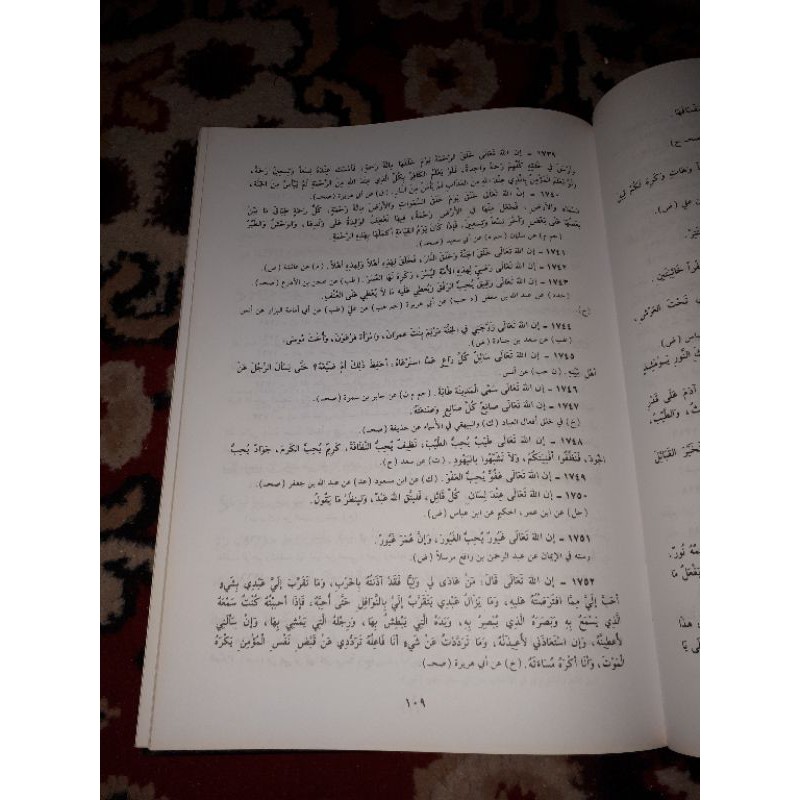 ١٧٣٩ - إن اللهَ تَعَالَى خَلَقَ الرَّحْمَةَ يَوْمَ خَلَقَهَا مِائَةَ رَحْمَةٍ، فَأَمْسَكَ عِنْدَهُ تِسْعاً وَتِسْعِينَ رَحْمَةً،
وَأَرْسَلَ فِي خَلْقِهِ كُلِّهِمْ رَحْمَةً وَاحِدَةً، فَلَوْ يَعْلَمُ الكَافِرُ بِكُلِّ الَّذِي عِنْدَ اللهِ مِنَ الرَّحْمَةِ لَمْ يَيْأَسْ مِنَ الجَنَّةِ،
وَلَوْ يَعْلَمُ المُؤْمِنُ بِالَّذِي عِنْدَ اللهِ مِنَ العَذَابِ لَمْ يَأْمَنْ مِنَ النَّارِ. (ق) عن أبي هريرة (صحـ).
١٧٤٠ - إن اللهَ تَعَالَى خَلَقَ يَوْمَ خَلَقَ السَّمٰوَاتِ وَالأَرْضَ مِائَةَ رَحْمَةٍ، كُلُّ رَحْمَةٍ طِبَاقُ مَا بَيْنَ
السَّمَاءِ وَالأَرْضِ، فَجَعَلَ مِنْهَا فِي الأَرْضِ رَحْمَةً، فَبِهَا تَعْطِفُ الوَالِدَةُ عَلَى وَلَدِهَا، وَالوَحْشُ وَالطَّيْرُ
بَعْضُهَا عَلَى بَعْضٍ وَأَخَّرَ تِسْعاً وَتِسْعِينَ، فَإِذَا كَانَ يَوْمُ القِيَامَةِ أَكْمَلَهَا بِهَذِهِ الرَّحْمَةِ.
(حم م) عن سلمان (حم ه) عن أبي سعيد (صحـ).
١٧٤١ - إن اللهَ تَعَالَى خَلَقَ الجَنَّةَ وَخَلَقَ النَّارَ، فَخَلَقَ لِهَذِهِ أَهْلاً وَلِهَذِهِ أَهْلاً. (م) عن عائشة (ض).
١٧٤٢ - إن اللهَ تَعَالَى رَضِيَ لِهَذِهِ الأُمَّةِ اليُسْرَ، وَكَرِهَ لَهَا العُسْرَ. (طب) عن محجن بن الأدرع (صحـ).
١٧٤٣ - إن اللهَ تَعَالَى رَفِيقٌ يُحِبُّ الرِّفْقَ وَيُعْطِي عَلَيْهِ مَا لاَ يُعْطِي عَلَى العُنْفِ.
(خدد) عن عبد الله بن مغفل (ه حب) عن أبي هريرة (حم هب) عن علي (طب) عن أبي أمامة البزار عن أنس
(ح).
١٧٤٤ - إن اللهَ تَعَالَى زَوَّجَنِي فِي الجَنَّةِ مَرْيَمَ بِنْتَ عِمْرَانَ، وَامْرَأَةَ فِرْعَوْنَ، وَأُخْتَ مُوسَى.
(طب) عن سعد بن جنادة (ض).
١٧٤٥ - إن اللهَ تَعَالَى سَائِلٌ كُلَّ رَاعٍ عَمَّا اسْتَرْعَاهُ، أَحَفِظَ ذَلِكَ أَمْ ضَيَّعَهُ؟ حَتَّى يَسْأَلَ الرَّجُلَ عَنْ
أَهْلِ بَيْتِهِ. (ن حب) عن أنس.
١٧٤٦ - إن اللهَ تَعَالَى سَمَّى المَدِينَةَ طَابَةً. (حم م ن) عن جابر بن سمرة (صحـ).
١٧٤٧ - إن اللهَ تَعَالَى صَانِعُ كُلِّ صَانِعٍ وَصَنْعَتِهِ.
(خ) في خلق أفعال العباد (ك) والبيهقي في الأسماء عن حذيفة (صحـ).
١٧٤٨ - إن اللهَ تَعَالَى طَيِّبٌ يُحِبُّ الطَّيِّبَ، نَظِيفٌ يُحِبُّ النَّظَافَةَ، كَرِيمٌ يُحِبُّ الكَرَمَ، جَوَادٌ يُحِبُّ
الجُودَ، فَنَظِّفُوا أَفْنِيَتَكُمْ، وَلاَ تَشَبَّهُوا بِاليَهُودِ. (ت) عن سعد (ح).
١٧٤٩ - إن اللهَ تَعَالَى عَفُوٌّ يُحِبُّ العَفْوَ. (ك) عن ابن مسعود (عد) عن عبد الله بن جعفر (صحـ).
١٧٥٠ - إن اللهَ تَعَالَى عِنْدَ لِسَانِ كُلِّ قَائِلٍ، فَلْيَتَّقِ اللهَ عَبْدٌ، وَلْيَنْظُرْ مَا يَقُولُ.
(حل) عن ابن عمر، الحكيم عن ابن عباس (ض).
١٧٥١ - إن اللهَ تَعَالَى غَيُورٌ يُحِبُّ الغَيُورَ، وَإِنَّ عُمَرَ غَيُورٌ.
رسته في الإيمان عن عبد الرحمن بن رافع مرسلاً (ض).
١٧٥٢ - إن اللهَ تَعَالَى قَالَ: مَنْ عَادَى لِي وَلِيًّا فَقَدْ آذَنْتُهُ بِالحَرْبِ، وَمَا تَقَرَّبَ إِلَيَّ عَبْدِي بِشَيْءٍ
أَحَبَّ إِلَيَّ مِمَّا افْتَرَضْتُهُ عَلَيْهِ، وَمَا يَزَالُ عَبْدِي يَتَقَرَّبُ إِلَيَّ بِالنَّوَافِلِ حَتَّى أُحِبَّهُ، فَإِذَا أَحْبَبْتُهُ كُنْتُ سَمْعَهُ
الَّذِي يَسْمَعُ بِهِ وَبَصَرَهُ الَّذِي يُبْصِرُ بِهِ، وَيَدَهُ الَّتِي يَبْطِشُ بِهَا، وَرِجْلَهُ الَّتِي يَمْشِي بِهَا، وَإِنْ سَأَلَنِي
لَأُعْطِيَنَّهُ، وَإِنِ اسْتَعَاذَنِي لَأُعِيذَنَّهُ، وَمَا تَرَدَّدْتُ عَنْ شَيْءٍ أَنَا فَاعِلُهُ تَرَدُّدِي عَنْ قَبْضِ نَفْسِ المُؤْمِنِ يَكْرَهُ
المَوْتَ، وَأَنَا أَكْرَهُ مُسَاءَتَهُ. (خ) عن أبي هريرة (صحـ).
١٠٩